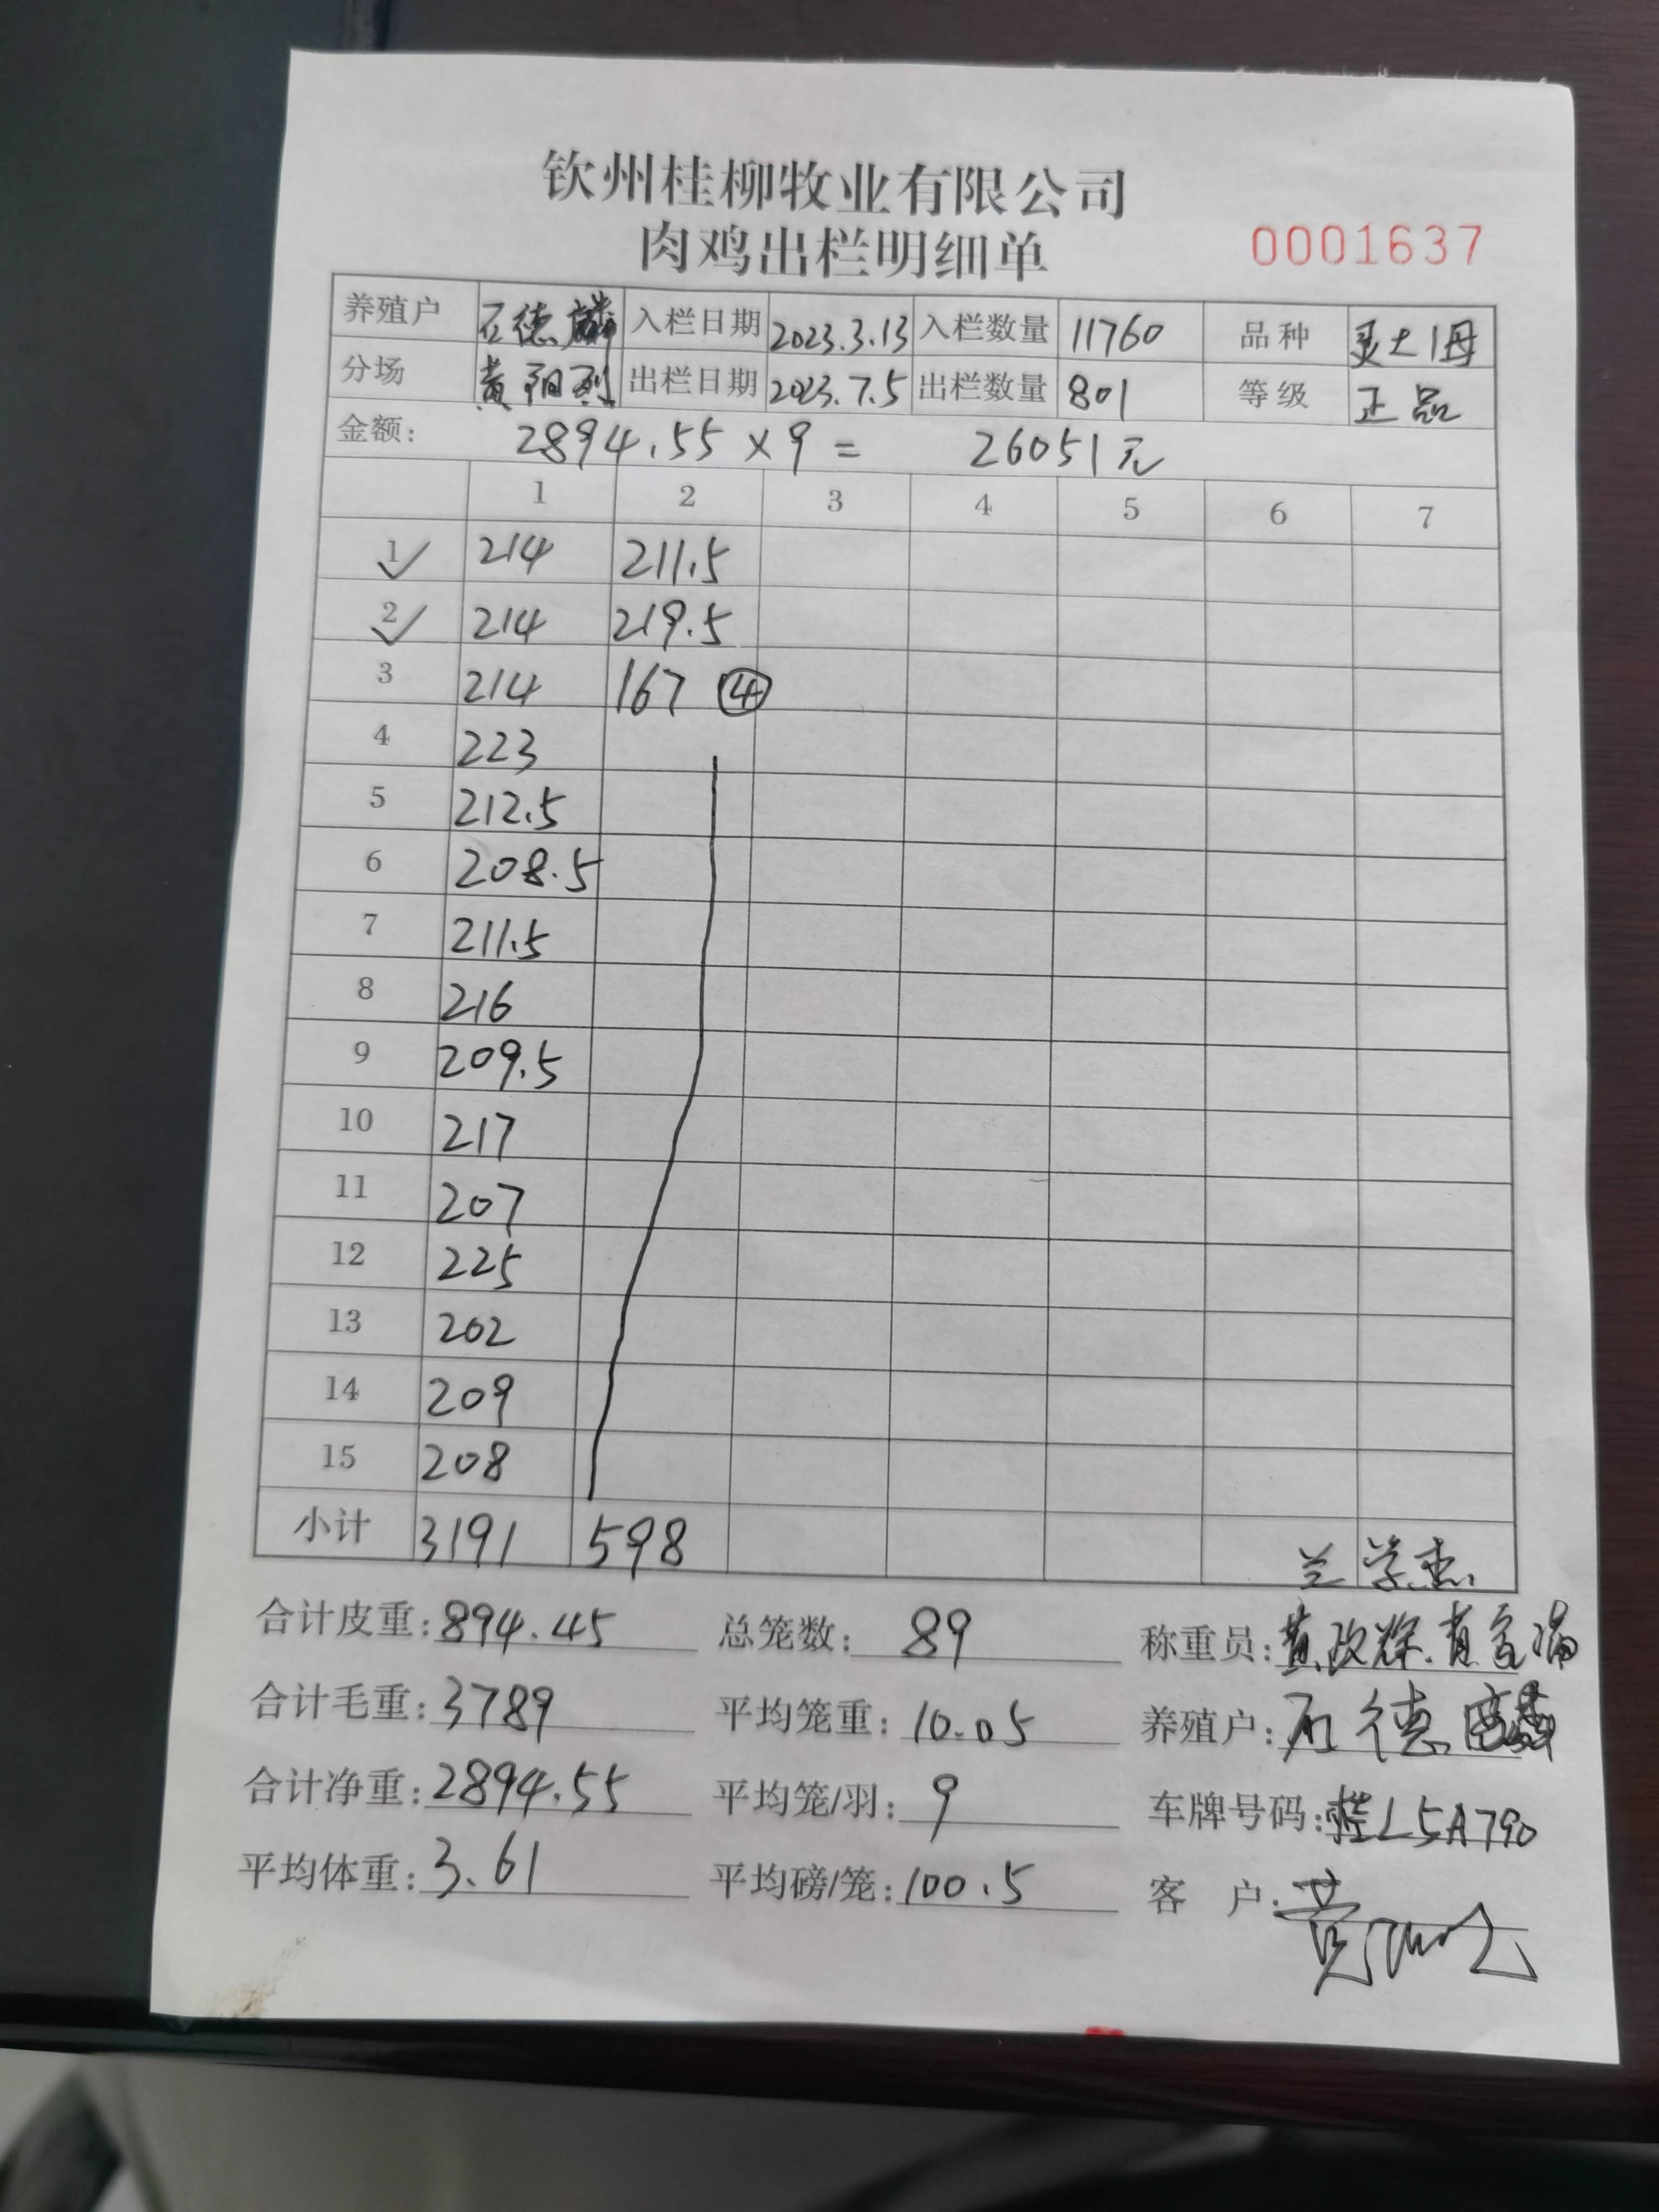 钦州桂柳牧业有限公司
肉鸡出栏明细单 0001637
养殖户 石德麟 入栏日期 2023.3.13 入栏数量 11760 品种 灵土1母
分场 出栏日期 2023.7.5 出栏数量 801 等级 正品
金额: 2894.55 × 9 = 26051元
1 2 3 4 5 6 7
1 214 211.5
2 214 219.5
3 214 167 ④
4 223
5 212.5
6 208.5
7 211.5
8 216
9 209.5
10 217
11 207
12 225
13 202
14 209
15 208
小计 3191 598
兰学杰
合计皮重: 894.45 总笼数: 89 称重员: 黄政
合计毛重: 3789 平均笼重: 10.05 养殖户: 石德麟
合计净重: 2894.55 平均笼/羽: 9 车牌号码: 桂L5A790
平均体重: 3.61 平均磅/笼: 100.5 客 户: 黄